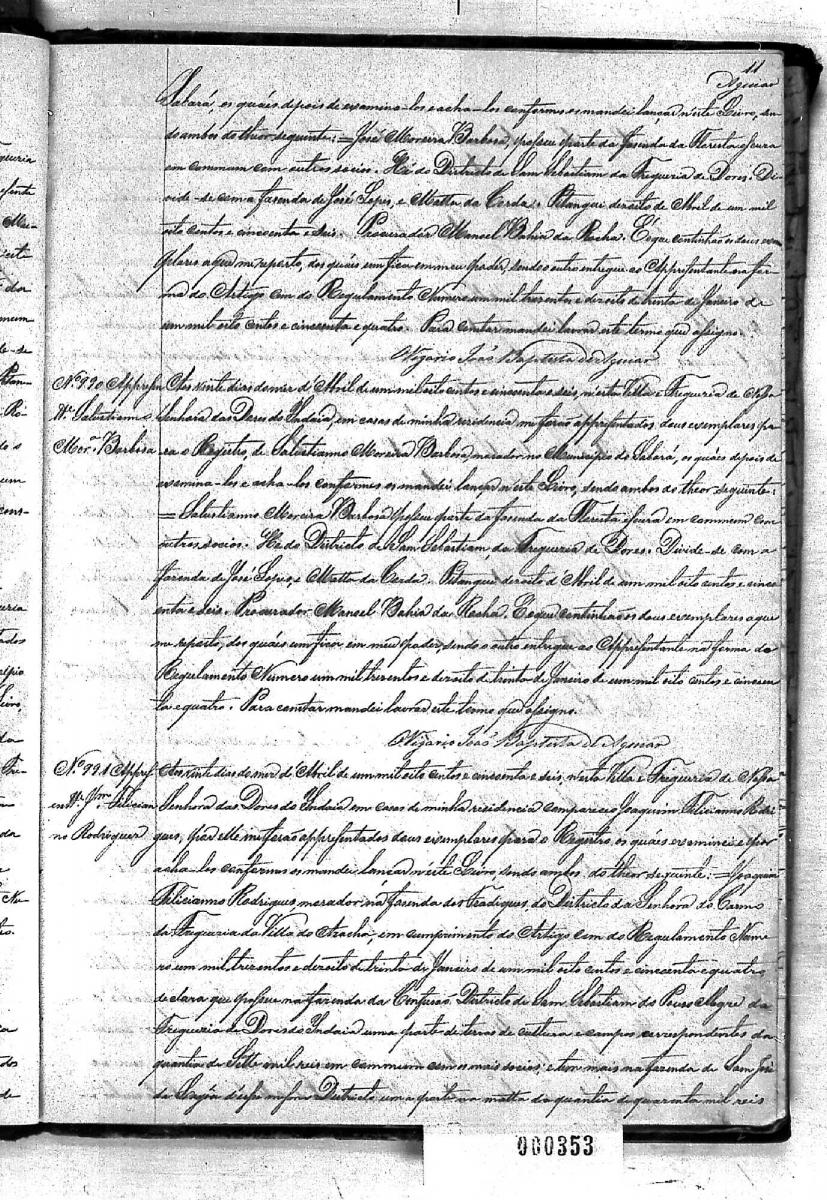 11
Aguiar
Sabará, os quáes depois de examina-los e acha-los conformes os mandei lançar n'este Livro, sen-
do ambos do theor seguinte: = José Moreira Barbosa, possue parte da fasenda da Floresta e foura
em commum com outros socios. He do Districto de Sam Sebastiam da Fregueria de Dores. Di-
vide-se com a fazenda de José Lopes, e Matta da Cerda. Pitangui desoito de Abril de um mil
oito centos e cincoenta e seis. Procurador Manoel Bahia da Rocha. E é que continhão os dous exem-
plares a que me reporto, dos quáes um fica em meu poder, sendo o outro entregue ao Appresentante na for-
ma do Artigo cem do Regulamento Numero um mil tresentos e desoito de trinta de Janeiro de
um mil oito centos e cincoenta e quatro. Para constar mandei lavrar este termo que assigno.
O Vigario João Baptista de Aguiar
Nº 990 Appresen
te Salustianno
Morª Barbosa
Aos vinte dias do mez d'Abril de um mil oito centos e cincoenta e seis, n'esta Villa e Fregueria de Nossa
Senhora das Dores do Indaiá, em casas de minha residencia me forão appresentados dous exemplares pa-
ra o Registro, de Salustianno Moreira Barbosa morador no Municipio do Sabará, os quáes depois de
examina-los e acha-los conformes os mandei lançar n'este Livro, sendo ambos do theor seguinte:
= Salustianno Moreira Barbosa possue parte da fasenda da Floresta e foura em commum com
outros socios. He do Districto de Sam Sebastiam da Fregueria de Dores. Divide-se com a
fazenda de José Lopes, e Matta da Cerda. Pitangui desoito d'Abril de um mil oito centos e cinco-
enta e seis. Procurador Manoel Bahia da Rocha. E é que continhão os dous exemplares a que
me reporto, dos quáes um fica em meu poder, sendo o outro entregue ao Appresentante na forma do
Regulamento Numero um mil tresentos e desoito de trinta de Janeiro de um mil oito centos e cincoen-
ta e quatro. Para constar mandei lavrar este termo que assigno.
O Vigario João Baptista de Aguiar
Nº 991 Appres
en te Jm Felician
no Rodrigues
Aos vinte dias do mez d'Abril de um mil oito centos e cincoenta e seis, n'esta Villa e Fregueria de Nossa
Senhora das Dores do Indaiá em casas de minha residencia compareceo Joaquim Felicianno Rodri-
gues, e por elle me forão appresentados dous exemplares para o Registro, os quáes examinei e por
acha-los conformes os mandei lançar n'este Livro, sendo ambos do theor seguinte: = Joaquim
Felicianno Rodrigues, morador na fazenda dos Fradiques, do Districto da Senhora do Carmo
da Fregueria da Villa do Araxá, em cumprimento do Artigo cem do Regulamento Nume-
ro um mil tresentos e desoito de trinta de Janeiro de um mil oito centos e cincoenta e quatro
declara que possue na fazenda da Confusão Districto de Sam Sebastiam do Pouso Alegre da
Fregueria de Dores do Indaiá uma parte de terras de cultura e campos correspondentes da
quantia de Sette mil reis em commum com os mais socios; e tem mais na fazenda de Sam José
da d'esse mesmo Districto uma parte na matta da quantia de quarenta mil reis
000353